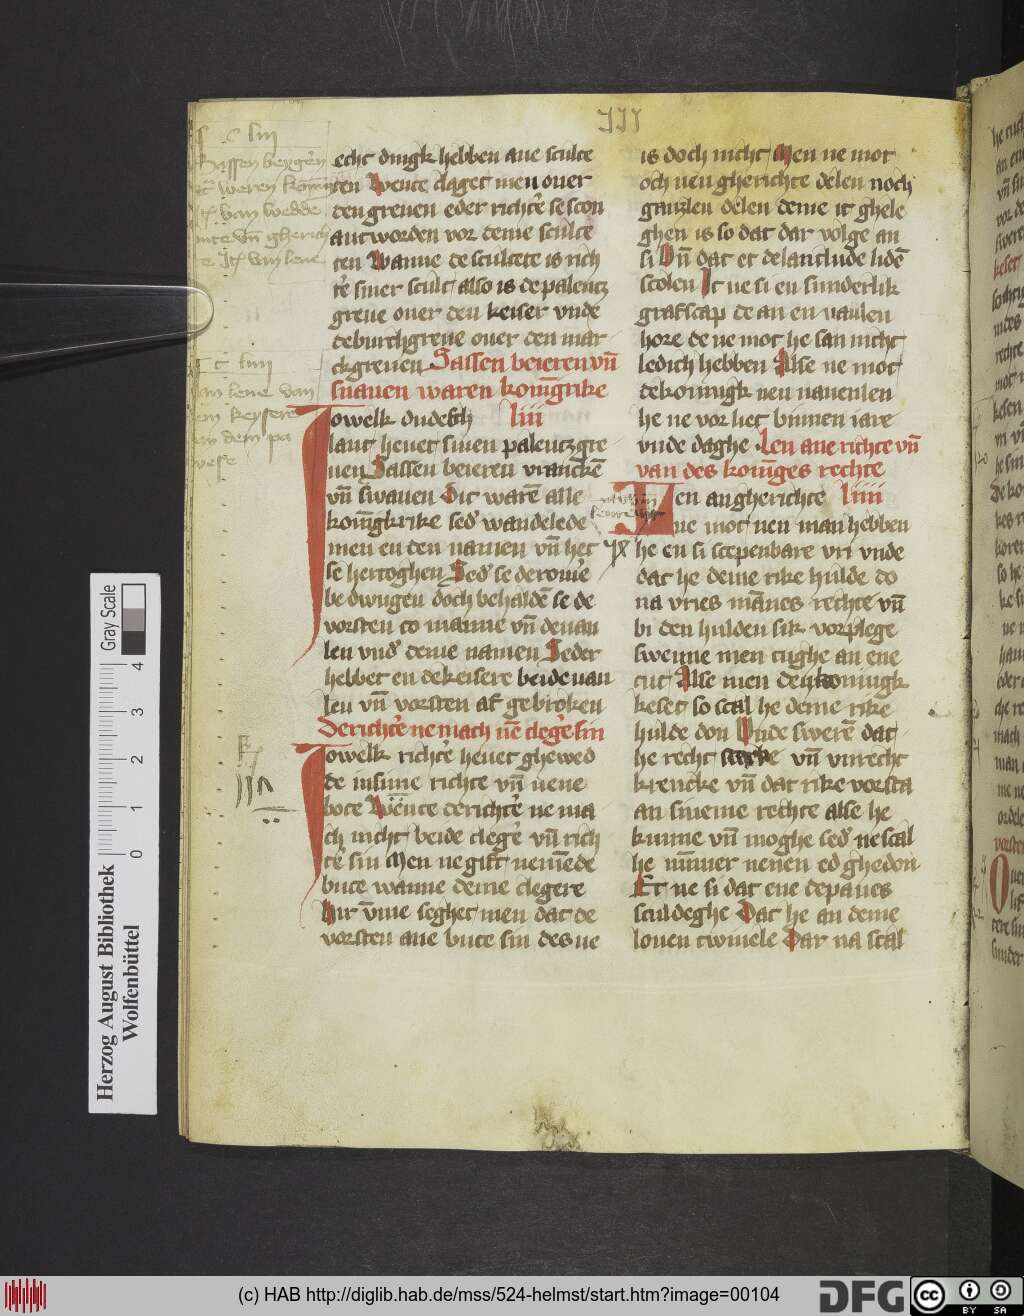 III
echt dingk hebben aue sculte
ten Wente claget men ouer
den greuen eder richtē se scon
antworden vor deme sculte
ten Wanne de scultete is rich
tē siner scult also is de palentz
greue ouer den keiser vnde
de burchgreue ouer den mar
ckgreuen Sassen beieren vn̄
suauen waren konīgrike
Iowelk dudesch liii
lant heuet sinen palentzgre
uen Sassen beieren vranckē
vn̄ swauen Dit warē alle
konīgkrike sed' wandelede
men en den namen vn̄ het
se hertoghen Sed' se de rome
be dwugen doch behaldē se de
vorsten to manne vn̄ de uan
len vnd' deme namen Seder
hebbet en de keisere beide uan
len vn̄ vorsten af gebroken
De richtē ne mach nīe clegē sin
Iowelk richtē heuet ghewed
de in sime richte vn̄ nene
bote Wente de richtē ne ma
ch nicht beide clegē vn̄ rich
tē sin Men ne gift nemēde
bute wanne deme clegere
Hir vm̄e seghet men dat de
vorsten ane bute sin des ne
is doch nicht Men ne mot
och nen gherichte delen noch
ganzlen delen deme it ghele
ghen is so dat dar volge an
si Vn̄ dat et de lantlude lidē
scolen It ne si en sunderlik
grafscap de an en uanlen
hore de ne mot he san nicht
ledich hebben Alse ne mot
de konnigk nen uanenlen
he ne vor liet binnen iare
vnde daghe Len ane richte vn̄
van des konīges rechte
Len an gherichte liiii
ne mot nen man hebben
he en si scepenbare vri vnde
dat he deme rike hulde do
na vries mānes rechte vn̄
bi den hulden sik vorplege
swenne men tughe an ene
tut Alse men den konnigk
keset so scal he deme rike
hulde don Vnde swerē dat
he recht sterke vn̄ vnrecht
krencke vn̄ dat rike vorsta
an sineme rechte alse he
kunne vn̄ moghe sed' ne scal
he nūmer nenen ed ghedon
Et ne si dat ene de paues
sculdeghe Dat he an deme
louen twiuele Dar na scal
Herzog August Bibliothek
Wolfenbüttel
Gray Scale
0 1 2 3 4
(c) HAB http://diglib.hab.de/mss/524-helmst/start.htm?image=00104
DFG
cc BY SA